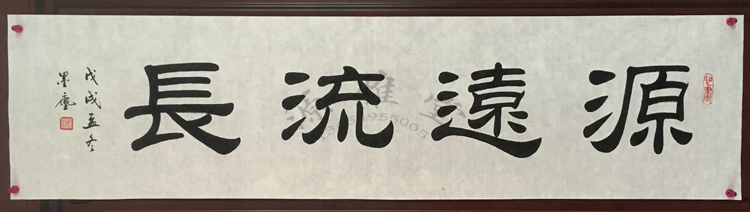 源遠流長
戊戌孟冬
墨塵